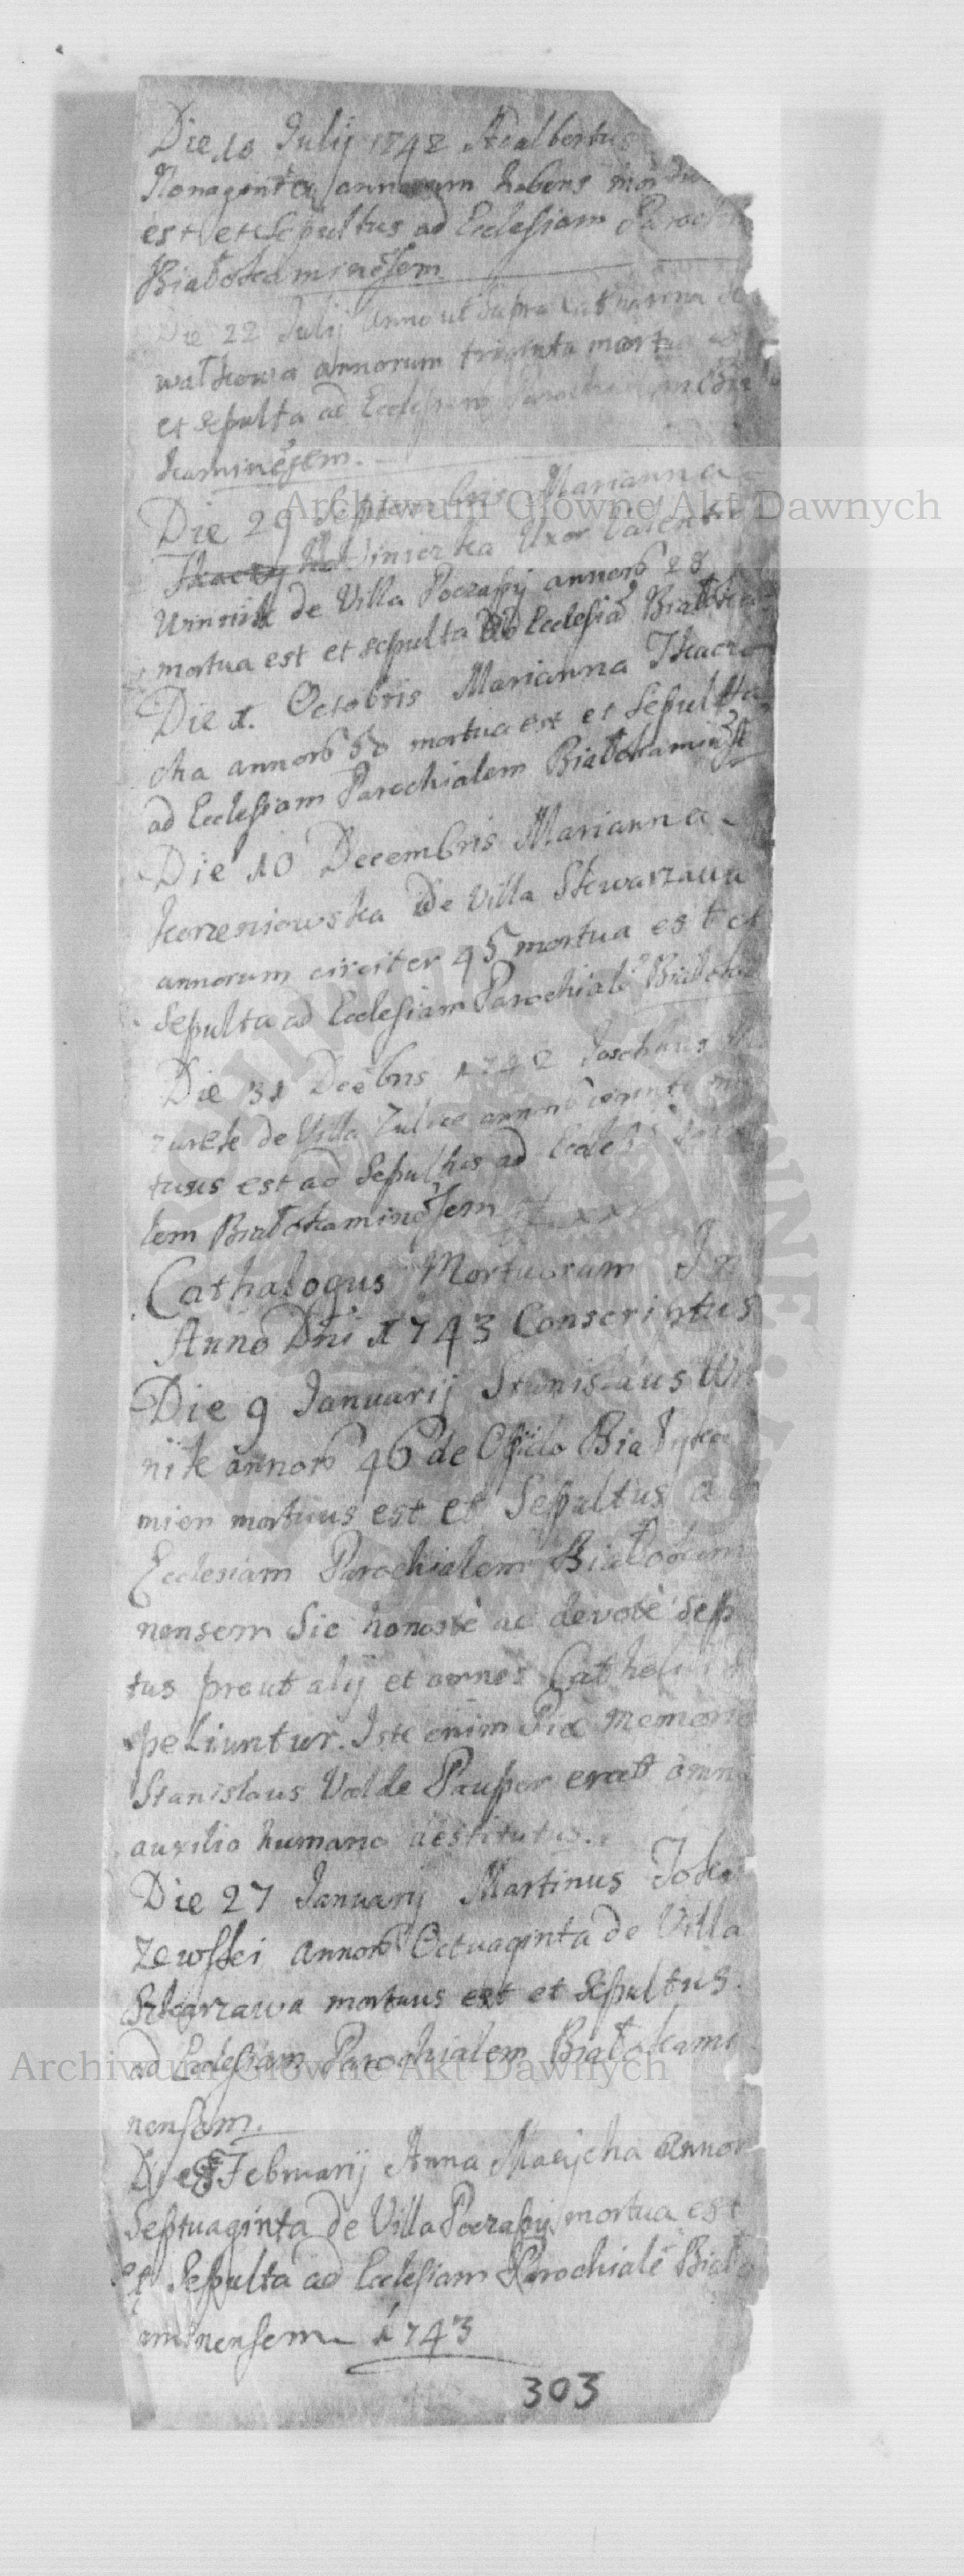 Die 10 Julij 1742 Adalbertus
Nonaginta annorum habens mortu
est et sepultus ad Ecclesiam Paroch
Białokaminesem
Die 22 Julij Anno ut supra Catharina
wałkowa annorum triginta mortua est
et sepulta ad Ecclesiam Parochialem Biało
kaminesem.
Die 29 Septembris Marianna
Winiczka Uxor Valenti
Winnik de Villa Poczapy annorō 28
mortua est et sepulta ad Ecclesiā Białoka
Die 1. Octobris Marianna Tkacz
cha annorō 50 mortua est et sepulta
ad Ecclesiam Parochialem Białokaminē
Die 10 Decembris Marianna
korzeniowska de Villa Skwarzawa
annorum circiter 45 mortua est et
sepulta ad Ecclesiam Parochialē Białoka
Die 31 Decēbris 1742
zurek de Villa Zulice
tuus est ad sepultus ad Ecclesiā
lem Białokaminesem
Cathalogus Mortuorum In
Anno Dni 1743 Conscriptus
Die 9 Januarij Stanislaus Wi
nik annorō 46 de Opido Białyka
mien mortuus est et Sepultus ad
Ecclesiam Parochialem Białokami
nensem Sic honestè ac devotè sep
tus prout alij et omnes Catholici
peliuntur. Iste enim Piæ memoriæ
Stanislaus Valde Pauper erat omni
auxilio humano destitutus.
Die 27 Januarij Martinus Toka
zewski annorō Octuaginta de Villa
Skwarzawa mortuus est et sepultus
ad Ecclesiam Parochialem Białokami
nensem.
Die Februarij Anna Macycha Annor
Septuaginta de Villa Poczapy mortua est
et Sepulta ad Ecclesiam Parochialē Biało
minensem 1743
303
Archiwum Główne Akt Dawnych
Archiwum Główne Akt Dawnych